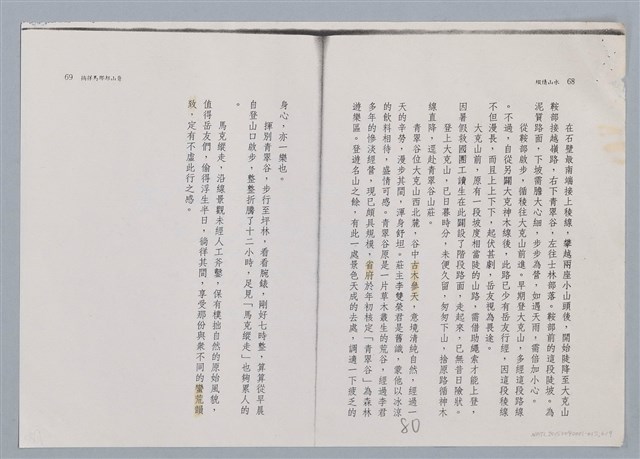 68 山水情緣
在石壁最南端接上稜線，攀越兩座小山頭後，開始陡降至大克山
鞍部接越嶺路，右下青翠谷，左往士林部落。鞍部前的這段陡坡。為
泥質路面，下坡需膽大心細，步步為營，如遇天雨，需倍加小心。
從鞍部啟步，循稜往大克山前進。早期登大克山，多經這段路線
。不過，自從另闢大克神木線後，此路已少有岳友行經，因這段稜線
不但漫長，而且上上下下，起伏甚劇，岳友視為畏途。
大克山前，原有一段坡度相當陡的山路，需借助繩索才能上登，
因暑假救國團工讀生在此闢設了階段路面，走起來，已無昔日險狀。
登上大克山，已日暮時分，未便久留，匆匆下山，捨原路循神木
線直降，逕赴青翠谷山莊。
青翠谷位大克山西北麓，谷中古木參天，意境清純自然，經過一
天的辛勞，漫步其間，渾身舒坦。莊主李雙榮君是舊識，蒙他以冰涼
的飲料相待，盛情可感。青翠谷原是一片草木叢生的荒谷，經過李君
多年的慘淡經營，現已頗具規模，省府於年初核定「青翠谷」為森林
遊樂區。登遊名山之餘，有此一處景色天成的去處，調適一下疲乏的
80
69
身心，亦一樂也。
揮別青翠谷，步行至坪林，看看腕錶，剛好七時整，算算從早晨
自登山口啟步，整整折騰了十二小時，足見「馬克縱走」也夠累人的
。
馬克縱走，沿線景觀未經人工斧鑿，保有樸拙自然的原始風貌，
值得岳友們，偷得浮生半日，徜徉其間，享受那份與眾不同的蠻荒韻
致，定有不虛此行之感。